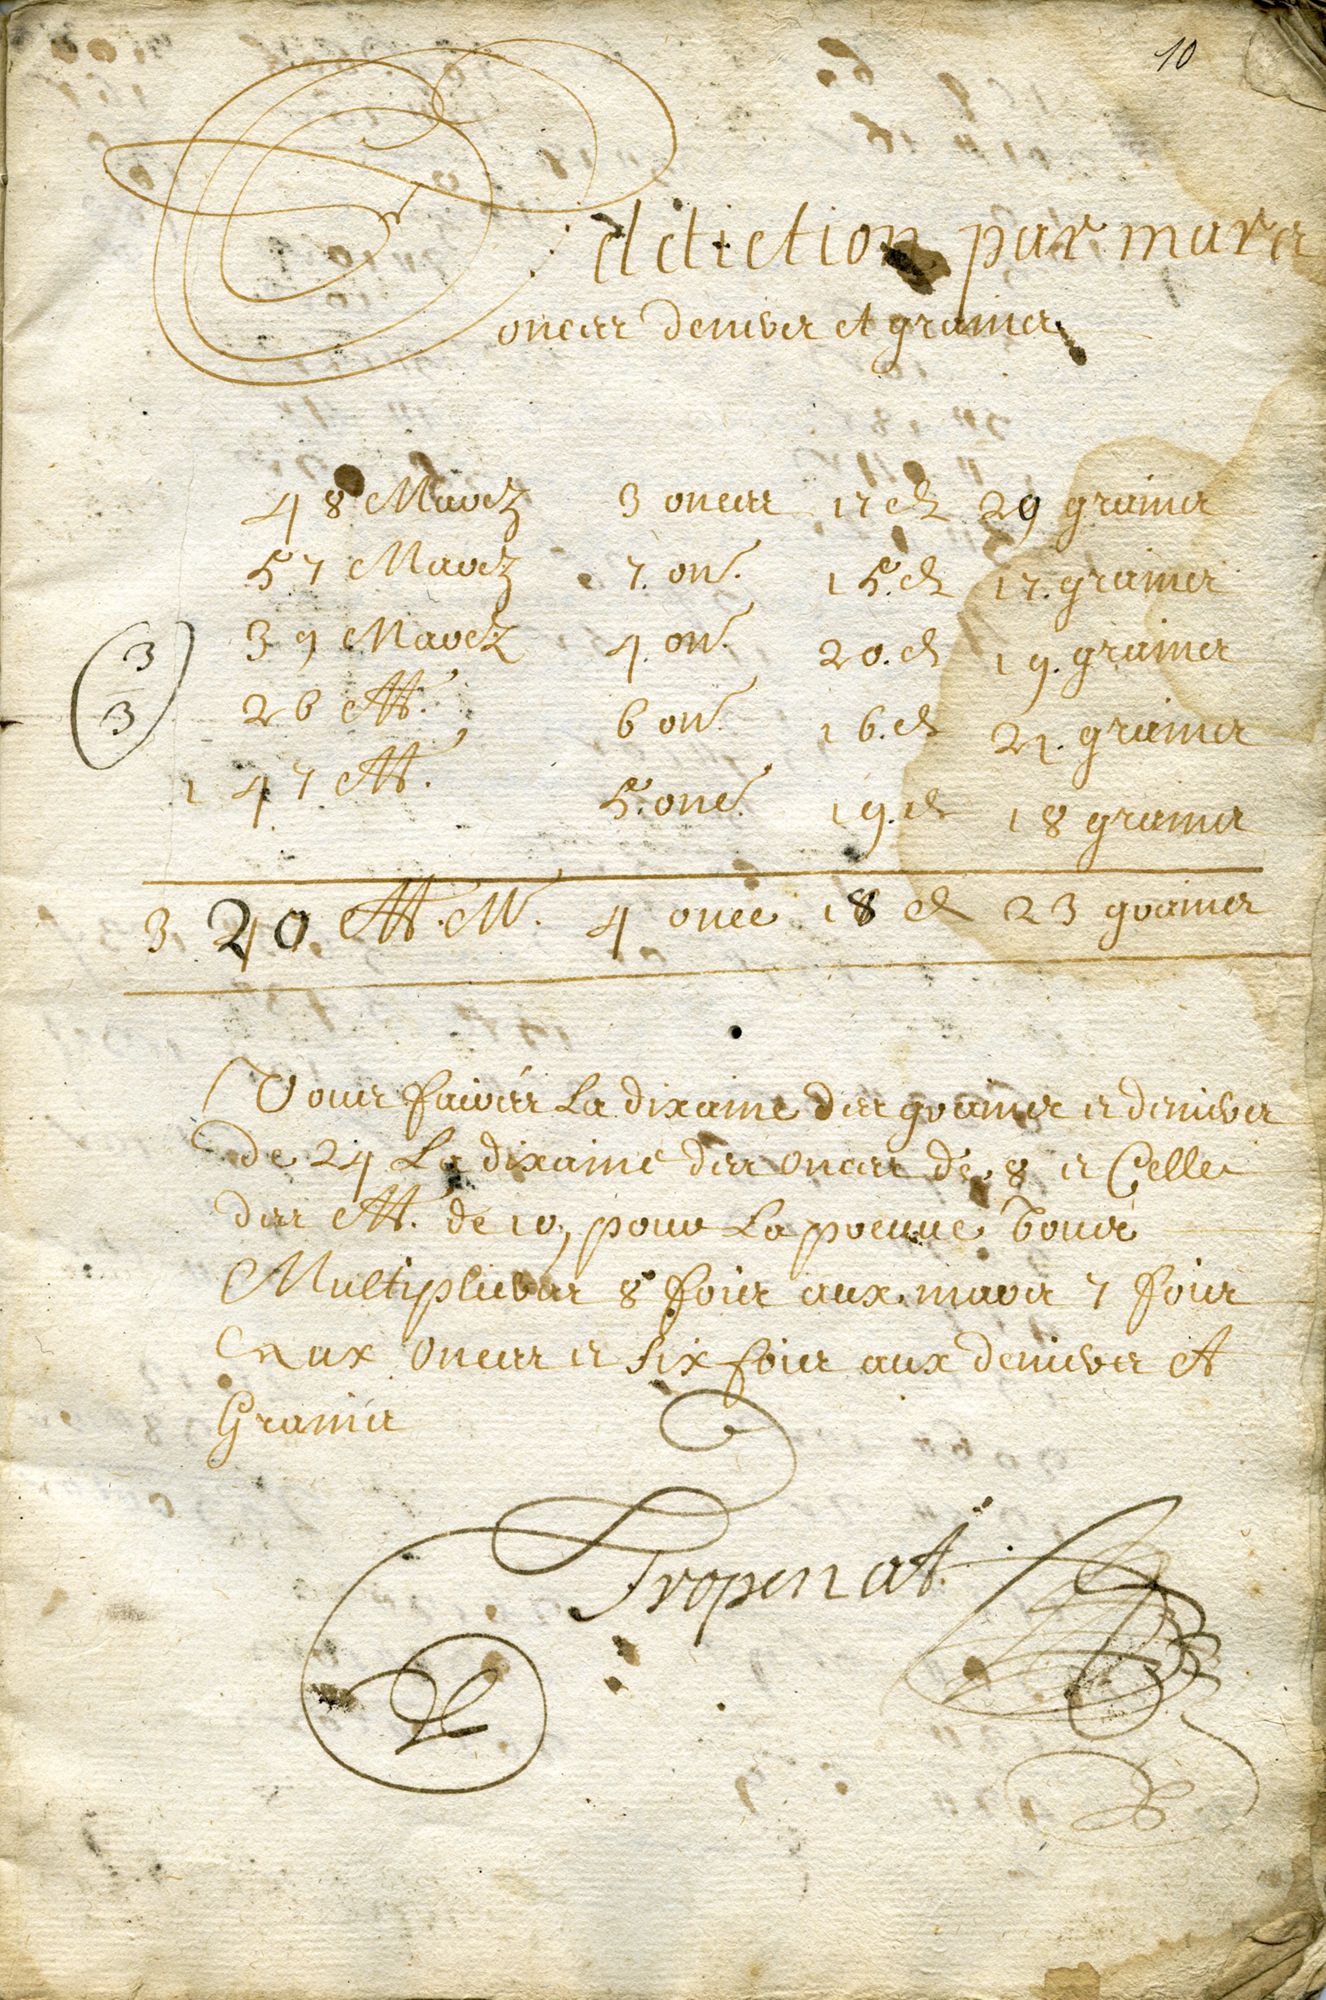 10
Addiction par marcs
onces deniers et grains
48 Marcz 3 onces 17 d 29 grains
57 Marcz 7. on. 15. d 17. grains
39 Marcz 4. on. 20. d 19. grains
3
3
26 M. 6 on. 16. d 21. grains
147 M. 5. once. 19. d 18 grains
320 M. M. 4 once 18 d 23 grains
Vous fairés La dixaine des grains es deniers
de 24 La dixaine des onces de 8 es Celle
des M. de 10, pour La preuue Vous
Multiplieres 8 fois aux marcs 7 fois
aux onces es six fois aux deniers et
Grains
Tropenat